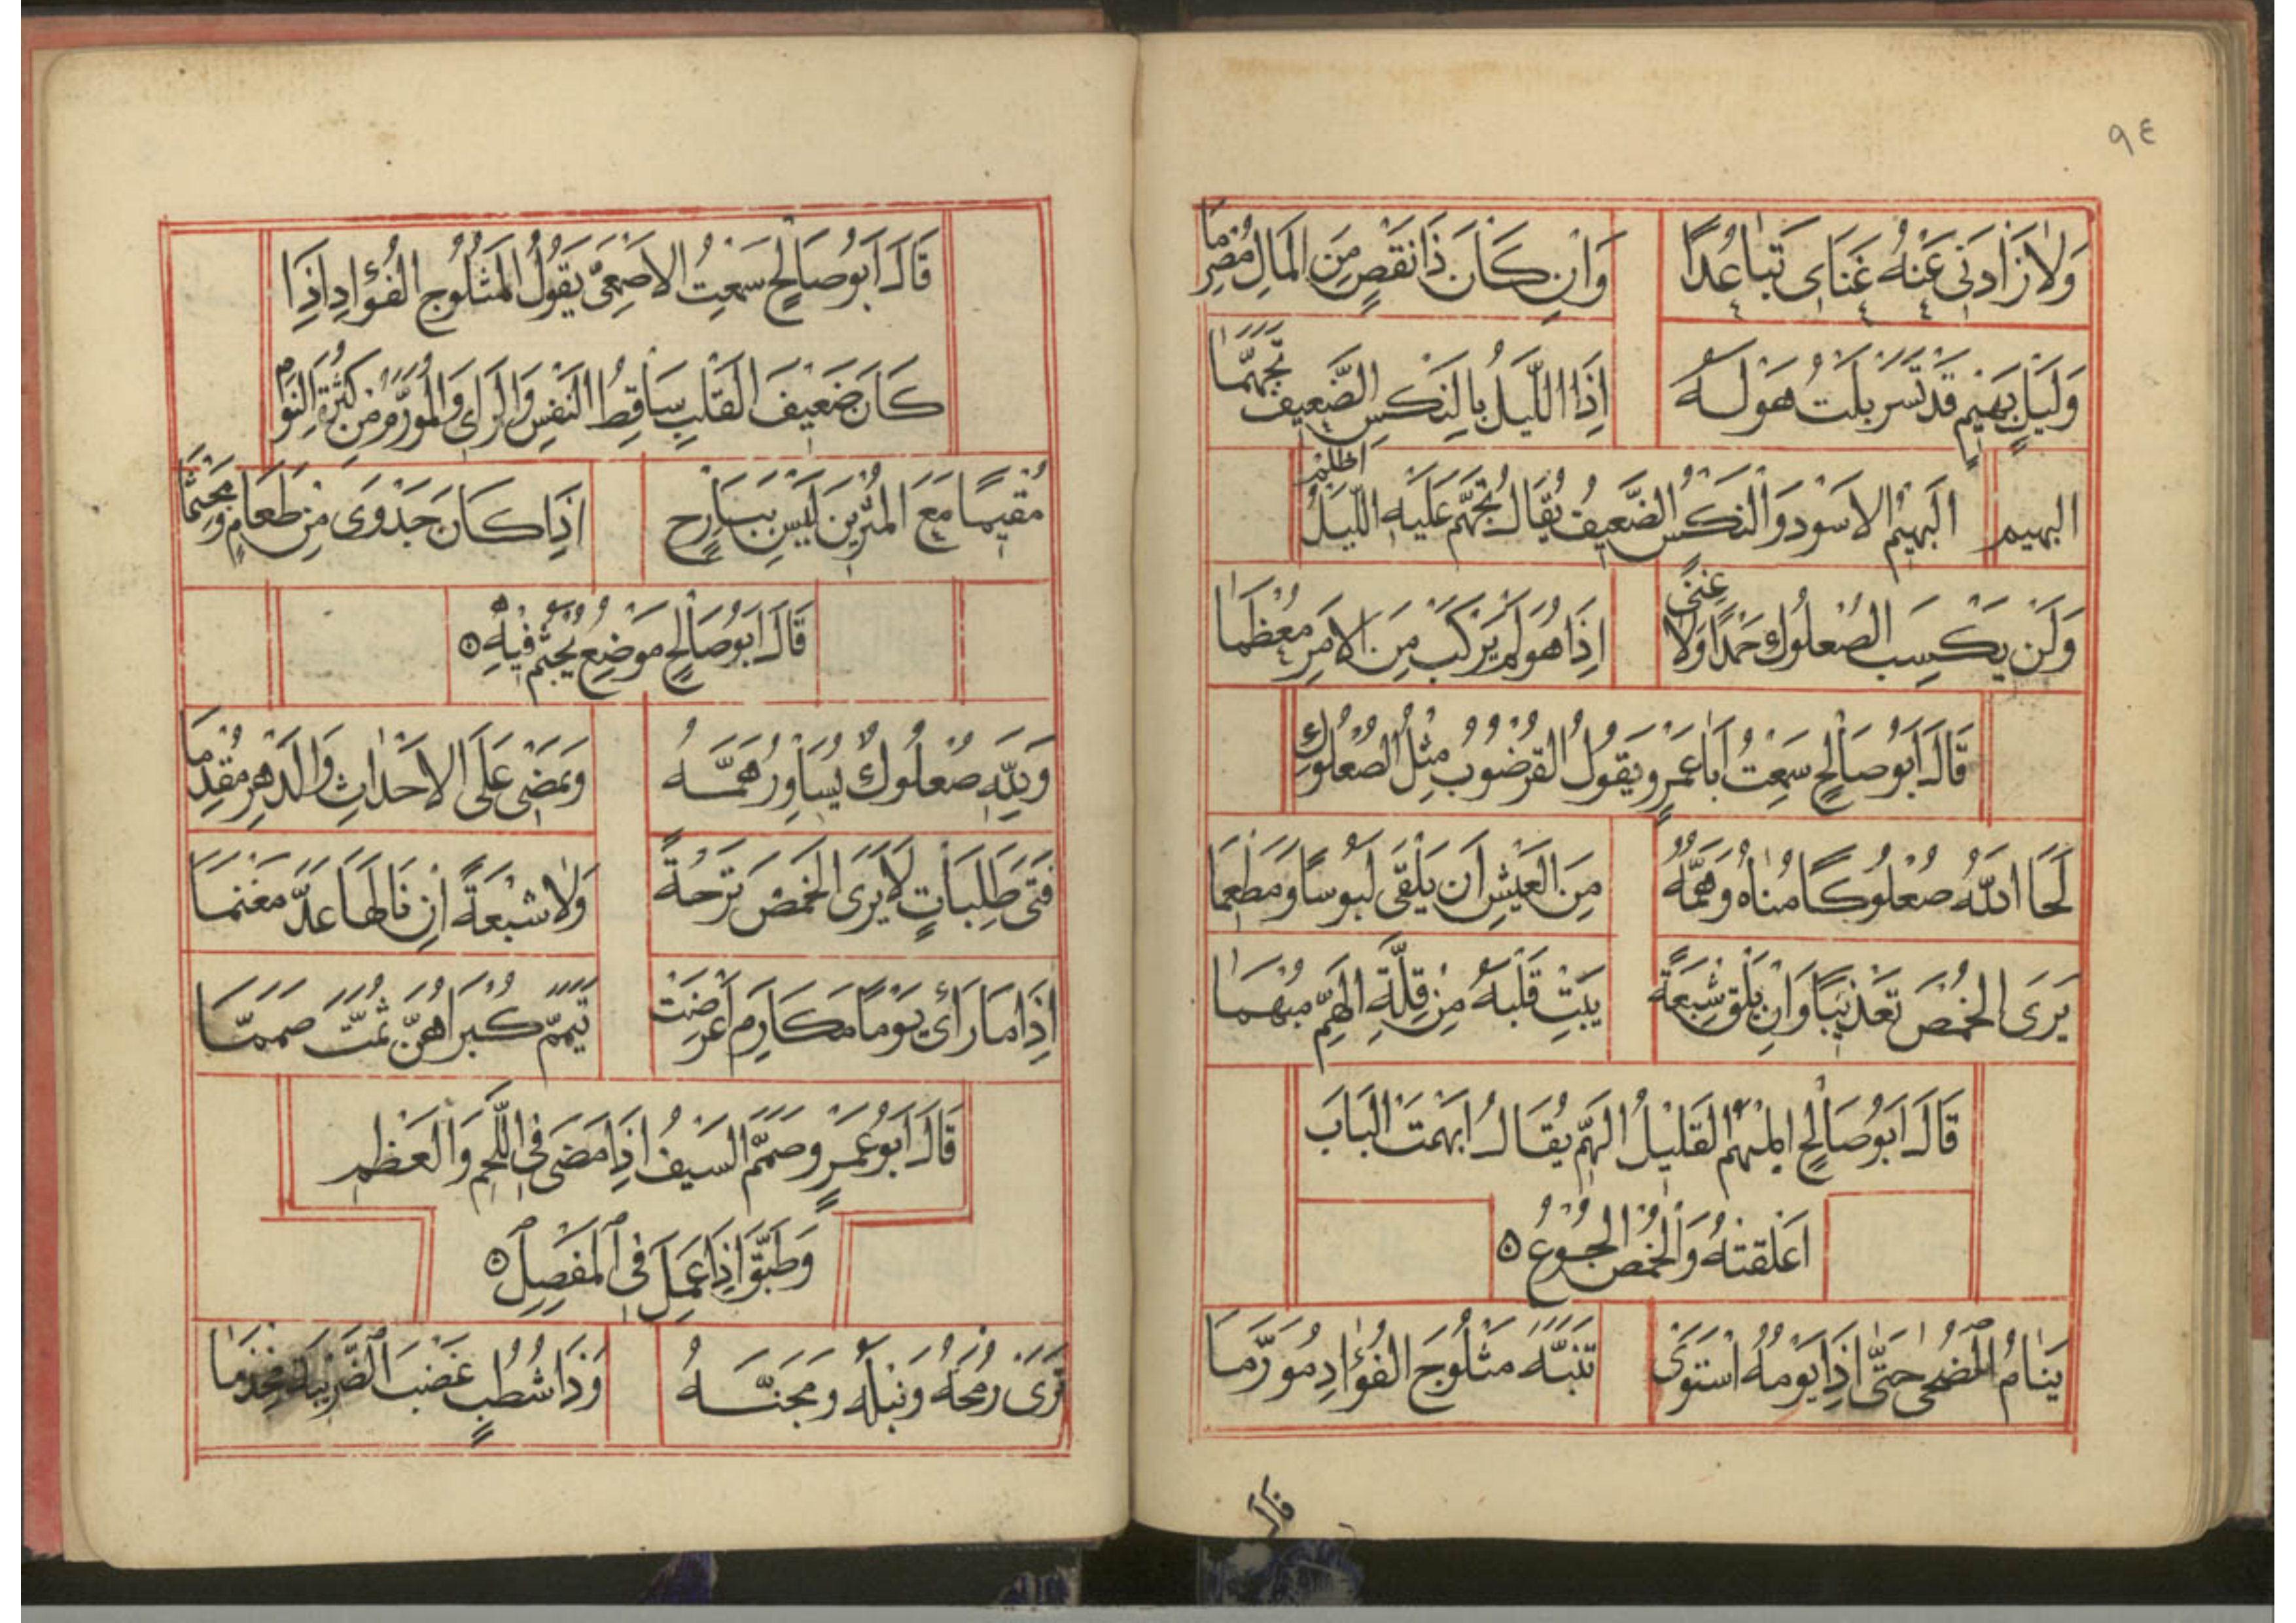 ٩٤
وَلَا زَادَنِي عَنْهُ غِنَاىَ تَبَاعُدًا وَاِنْ كَانَ ذَا نَقْصٍ مِنَ الْمَالِ مُصْرِمَا
وَلَيْلٍ بَهِيمٍ قَدْ تَسَرْبَلْتُ هَوْلَهُ اِذَا اللَّيْلُ بِالنِّكْسِ الضَّعِيفِ تَجَهَّمَا
البهيم الْبَهِيْمُ الاَسْوَدُ وَالنِّكْسُ الضَّعِيفُ يُقَالُ تَجَهَّمَ عَلَيْهِ اللَّيْلُ اظلم
وَلَنْ يَكْسِبَ الصُّعْلُوكُ حَمْدًا وَلَا غِنًى اِذَا هُوَ لَمْ يَرْكَبْ مِنَ الاَمْرِ مُعْظَمَا
قَالَ اَبُو صَالِحٍ سَمِعْتُ اَبَا عَمْرٍو يَقُولُ الْقُرْضُوبُ مِثْلُ الصُّعْلُوكِ
لَحَا اللّٰهُ صُعْلُوكًا مُنَاهُ وَهَمُّهُ مِنَ الْعَيْشِ اَنْ يَلْقَى لَبُوسًا وَمَطْعِمَا
يَرَى الْخُمْصَ تَعْذِيبًا وَاِنْ يَلْقَ شِبْعَةً يَبِتْ قَلْبُهُ مِنْ قِلَّةِ الْهَمِّ مُبْهَمَا
قَالَ اَبُو صَالِحٍ الْمُبْهَمُ الْقَلِيلُ الْهَمِّ يُقَالُ اَبْهَمْتَ الْبَابَ
اَغْلَقْتَهُ وَالْخُمْصُ الْجُوْعُ ٥
يَنَامُ الضُّحَى حَتَّى اِذَا يَوْمُهُ اسْتَوَى تَنَبَّهَ مَثْلُوجَ الْفُؤَادِ مُوَرَّمَا
قال
قَالَ اَبُو صَالِحٍ سَمِعْتُ الاَصْمَعِىَّ يَقُولُ الْمَثْلُوجُ الْفُؤَادِ اِذَا
كَانَ ضَعِيفَ الْقَلْبِ سَاقِطُ النَّفْسِ وَالرَّاىِ وَالْمُوَرَّمُ مِنْ كَثْرَةِ النَّوْمِ
مُقِيمًا مَعَ الْمُثْرِينَ لَيْسَ بِبَارِحٍ اِذَا كَانَ جَدْوَى مِنْ طَعَامٍ وَمَجْثِمَا
قَالَ اَبُو صَالِحٍ مَوْضِعٌ يُجْثَمُ فِيْهِ ٥
وَلِلّٰهِ صُعْلُوكٌ يُسَاوِرُ هَمَّهُ وَيَمْضِى عَلَى الاَحْدَاثِ وَالدَّهْرِ مُقْدِمَا
فَتَى طَلِبَاتٍ لَا يَرَى الْخُمْصَ تَرْحَةً وَلَا شَبْعَةً اِنْ نَالَهَا عَدَّ مَغْنَمَا
اِذَا مَا رَأَى يَوْمًا مَكَارِمَ اَعْرَضَتْ تَيَمَّمَ كُبْرَاهُنَّ ثُمَّتَ صَمَّمَا
قَالَ اَبُو عَمْرٍو صَمَّمَ السَّيْفُ اِذَا مَضَى فِى اللَّحْمِ وَالْعَظْمِ
وَطَبَّقَ اِذَا عَمِلَ فِى الْمَفْصِلِ ٥
تَرَى رُمْحَهُ وَنَبْلَهُ وَمِجَنَّهُ وَذَا شُطَبٍ عَضْبَ الضَّرِيبَةِ مِخْذَمَا